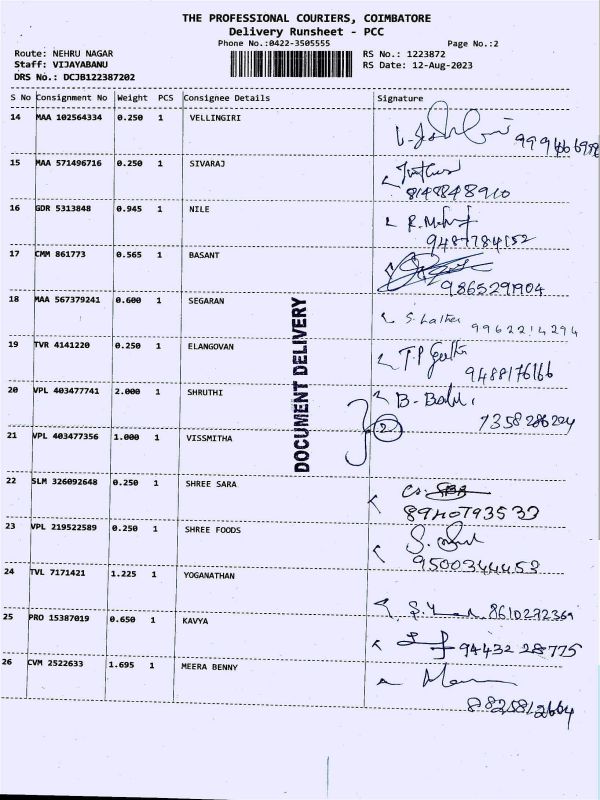 THE PROFESSIONAL COURIERS, COIMBATORE
Delivery Runsheet - PCC
Phone No.:0422-3505555 Page No.:2
Route: NEHRU NAGAR RS No.: 1223872
Staff: VIJAYABANU RS Date: 12-Aug-2023
DRS No.: DCJB122387202
S No Consignment No Weight PCS Consignee Details Signature
14 MAA 102564334 0.250 1 VELLINGIRI
15 MAA 571496716 0.250 1 SIVARAJ
8148848910
16 GDR 5313848 0.945 1 NILE
9487784152
17 CMM 861773 0.565 1 BASANT
9865291904
18 MAA 567379241 0.600 1 SEGARAN
S. Latha 9962214294
19 TVR 4141220 0.250 1 ELANGOVAN
9488176166
20 VPL 403477741 2.000 1 SHRUTHI
B. Babu 7358286224
2
21 VPL 403477356 1.000 1 VISSMITHA
22 SLM 326092648 0.250 1 SHREE SARA
23 VPL 219522589 0.250 1 SHREE FOODS
9500344453
24 TVL 7171421 1.225 1 YOGANATHAN
8610272369
25 PRO 15387019 0.650 1 KAVYA
94432 28775
26 CVM 2522633 1.695 1 MEERA BENNY
DOCUMENT DELIVERY